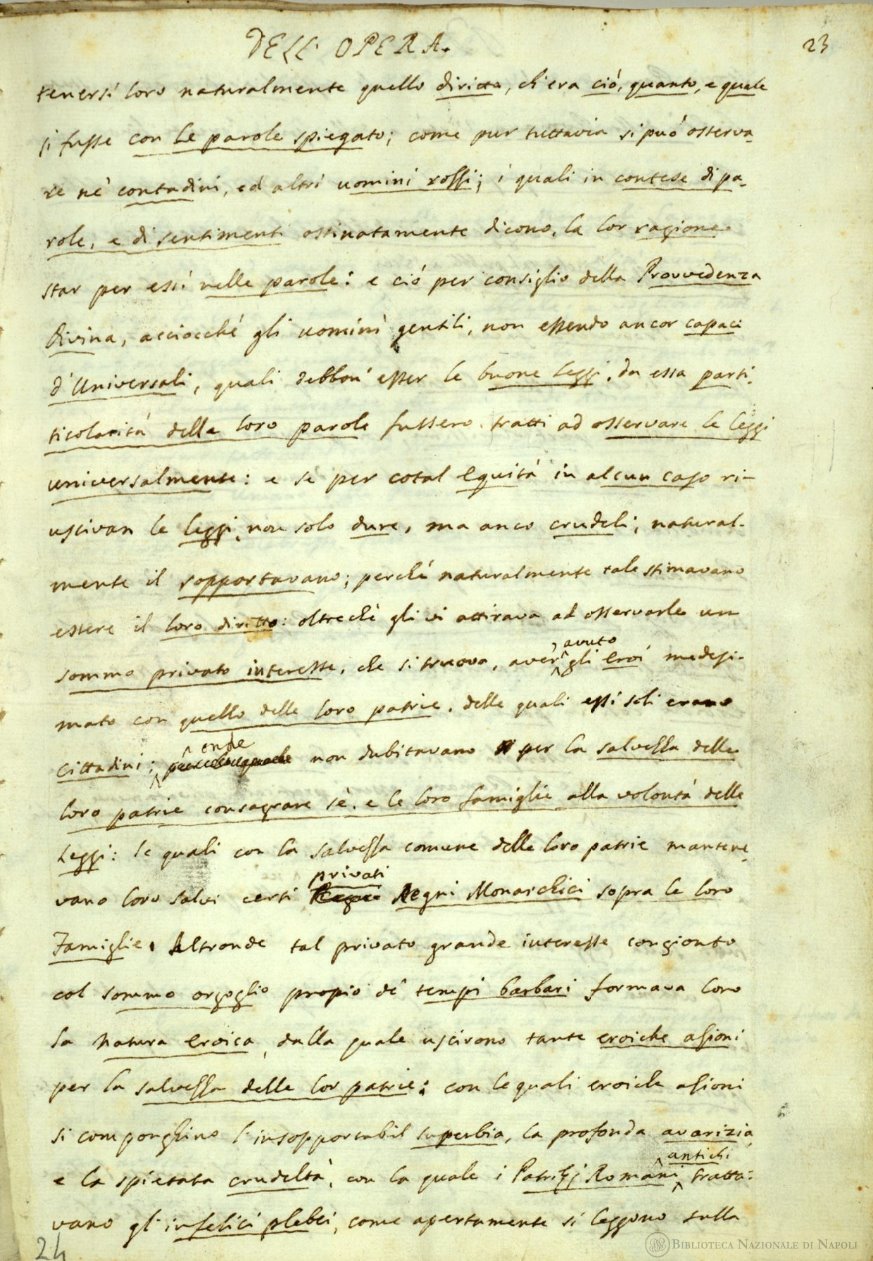 DELL' OPERA.
23
tenersi loro naturalmente quello diritto, ch'era ciò, quanto, e quale
si fusse con le parole spiegato; come pur tuttavia si può osserva-
re ne' contadini, ed altri uomini rozzi; i quali in contese di pa-
role, e di sentimenti ostinatamente dicono, la lor ragione
star per essi nelle parole: e ciò per consiglio della Provvedenza
Divina, acciocchè gli uomini gentili, non essendo ancor capaci
d'Universali, quali debbon' esser le buone leggi, da essa parti-
ticolarità delle loro parole fussero tratti ad osservare le leggi
universalmente: e se per cotal Equità in alcun caso ri-
uscivan le leggi, non solo dure, ma anco crudeli, natural-
mente il sopportavano; perchè naturalmente tale stimavano
essere il loro diritto: oltrechè gli vi attirava ad osservarle un
sommo privato interesse, che si truova, aver' avuto gli Eroi medesi-
mato con quello delle loro patrie, delle quali essi soli erano
Cittadini; onde non dubitavano per la salvezza delle
loro patrie consagrare sè, e le loro famiglie alla volontà delle
Leggi: le quali con la salvezza comune delle loro patrie mantene-
vano loro salvi certi privati Regni Monarchici sopra le loro
Famiglie. Altronde tal privato grande interesse congionto
col sommo orgoglio propio de' tempi barbari formava loro
la Natura eroica, dalla quale uscirono tante eroiche azioni
per la salvezza delle lor patrie: con le quali eroiche azioni
si componghino l'insopportabil superbia, la profonda avarizia,
e la spietata crudeltà, con la quale i Patrizj Romani antichi tratta-
vano gl'infelici plebei, come apertamente si leggono sulla
24
BIBLIOTECA NAZIONALE DI NAPOLI